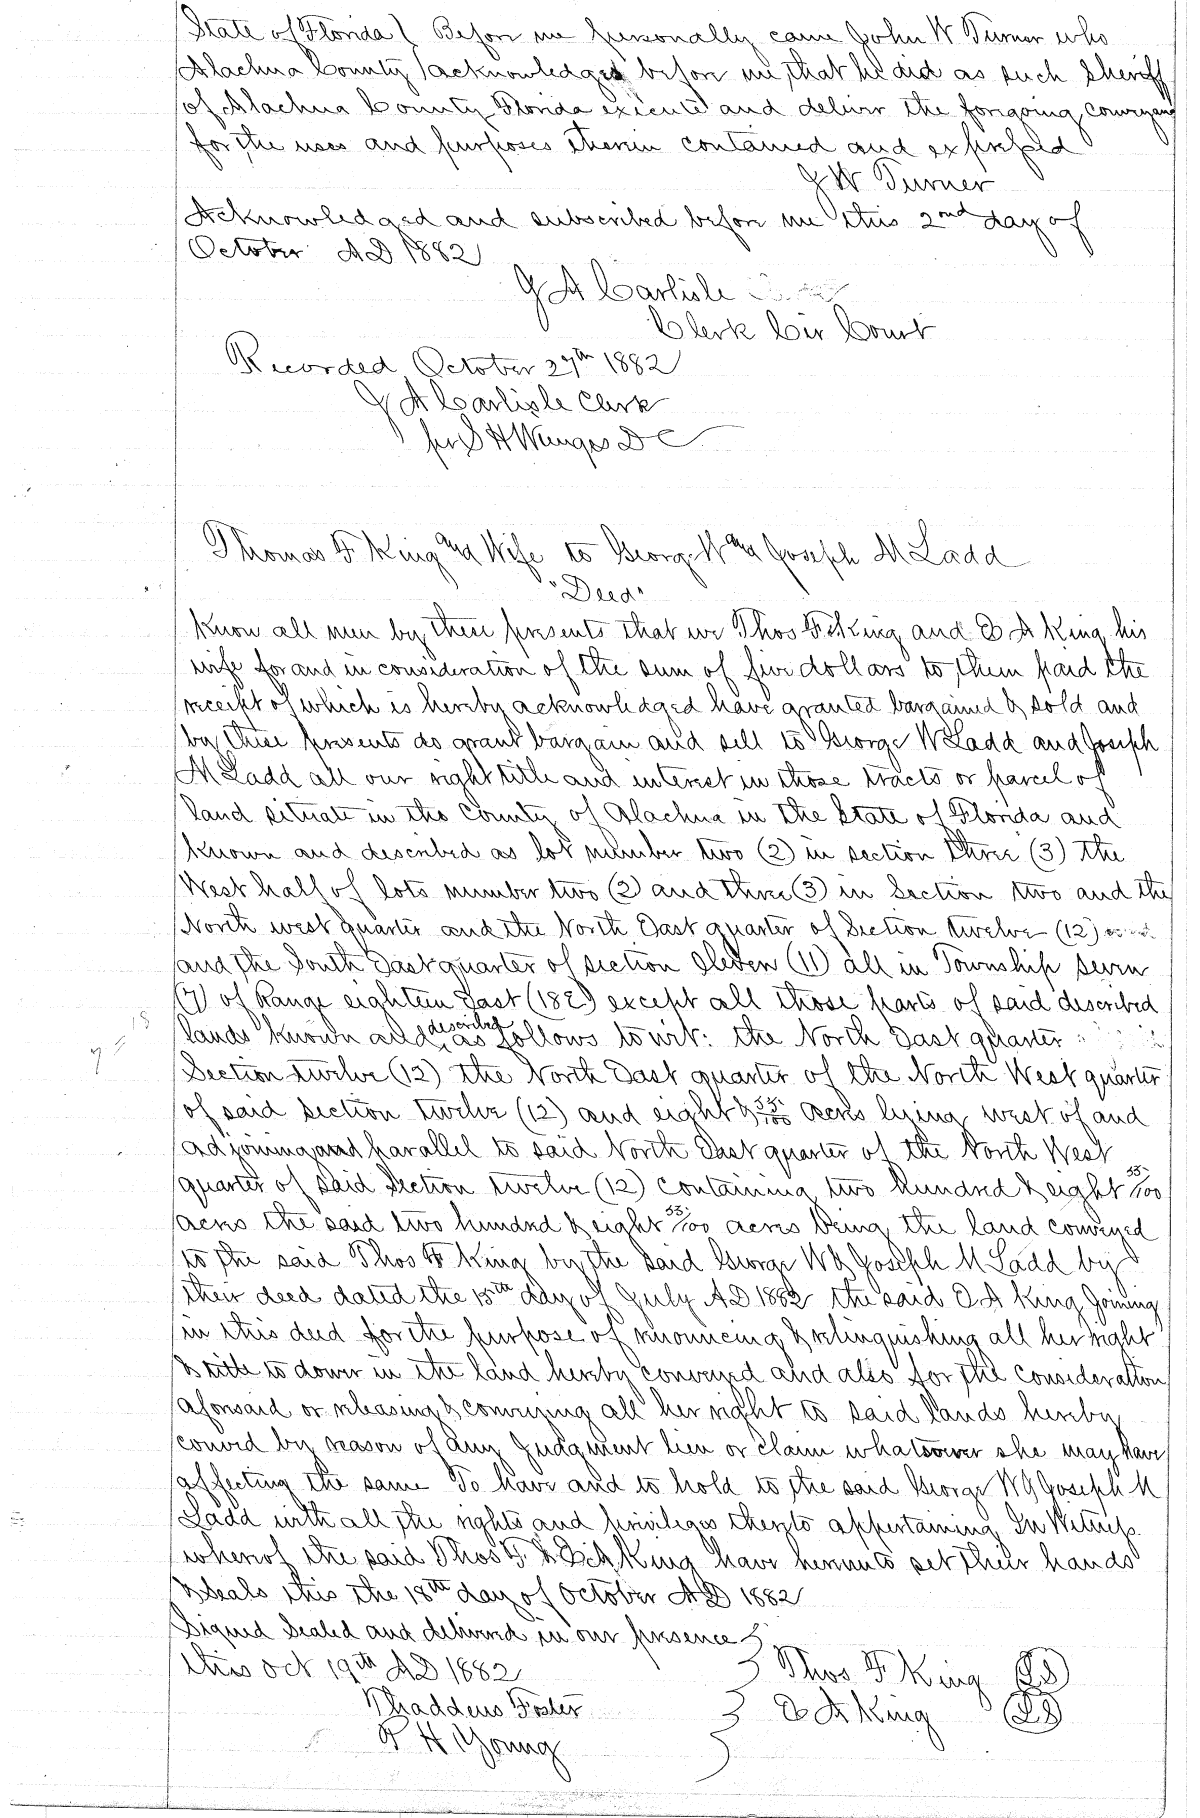 State of Florida } Before me personally came John W Turner who
Alachua County } acknowledged before me, that he did as such Sheriff
of Alachua County Florida execute and deliver the forgoing conveyance
for the uses and purposes therein contained and expressed
J W Turner
Acknowledged and subscribed before me this 2nd day of
October AD 1882
J A Carlisle
Clerk Cir Court
Recorded October 27th 1882
J A Carlisle Clerk
per S H Wienges D C
Thomas F King and Wife to George W and Joseph M Ladd
"Deed"
Know all men by these presents that we Thos F. King and E A King his
wife for and in consideration of the sum of five dollars to them paid the
receipt of which is hereby acknowledged have granted bargained & sold and
by these presents do grant bargain and sell to George W Ladd and Joseph
M Ladd all our right title and interest in those tracts or parcel of
land situate in the County of Alachua in the State of Florida and
known and described as lot number two (2) in section three (3) the
West half of lots number two (2) and three (3) in Section two and the
North west quarter and the North East quarter of Section twelve (12)
and the South East quarter of section Eleven (11) all in Township seven
(7) of Range eighteen East (18E) except all those parts of said described
lands known and described as follows to wit: the North East quarter
Section twelve (12) the North East quarter of the North West quarter
of said section twelve (12) and eight & 55/100 acres lying west of and
adjoining and parallel to said North East quarter of the North West
quarter of said Section twelve (12) containing two hundred & eight 55/100
acres the said two hundred & eight 55/100 acres being the land conveyed
to the said Thos F King by the said George W & Joseph M Ladd by
their deed dated the 15th day of July AD 1882 the said E A King Joining
in this deed for the purpose of renouncing & relinquishing all her right
& title to dower in the land hereby conveyed and also for the consideration
aforesaid or releasing & conveying all her right to said lands hereby
convid by reason of any Judgment lien or claim whatsoever she may have
affecting the same To have and to hold to the said George W & Joseph M
Ladd with all the rights and privileges thereto appertaining In Witness
whereof the said Thos F & E A King have hereunto set their hands
& seals this the 18th day of October AD 1882
Signed Sealed and delivered in our presence }
this Oct 19th AD 1882 } Thos F King LS
Thaddeus Foster } E A King LS
P H Young }